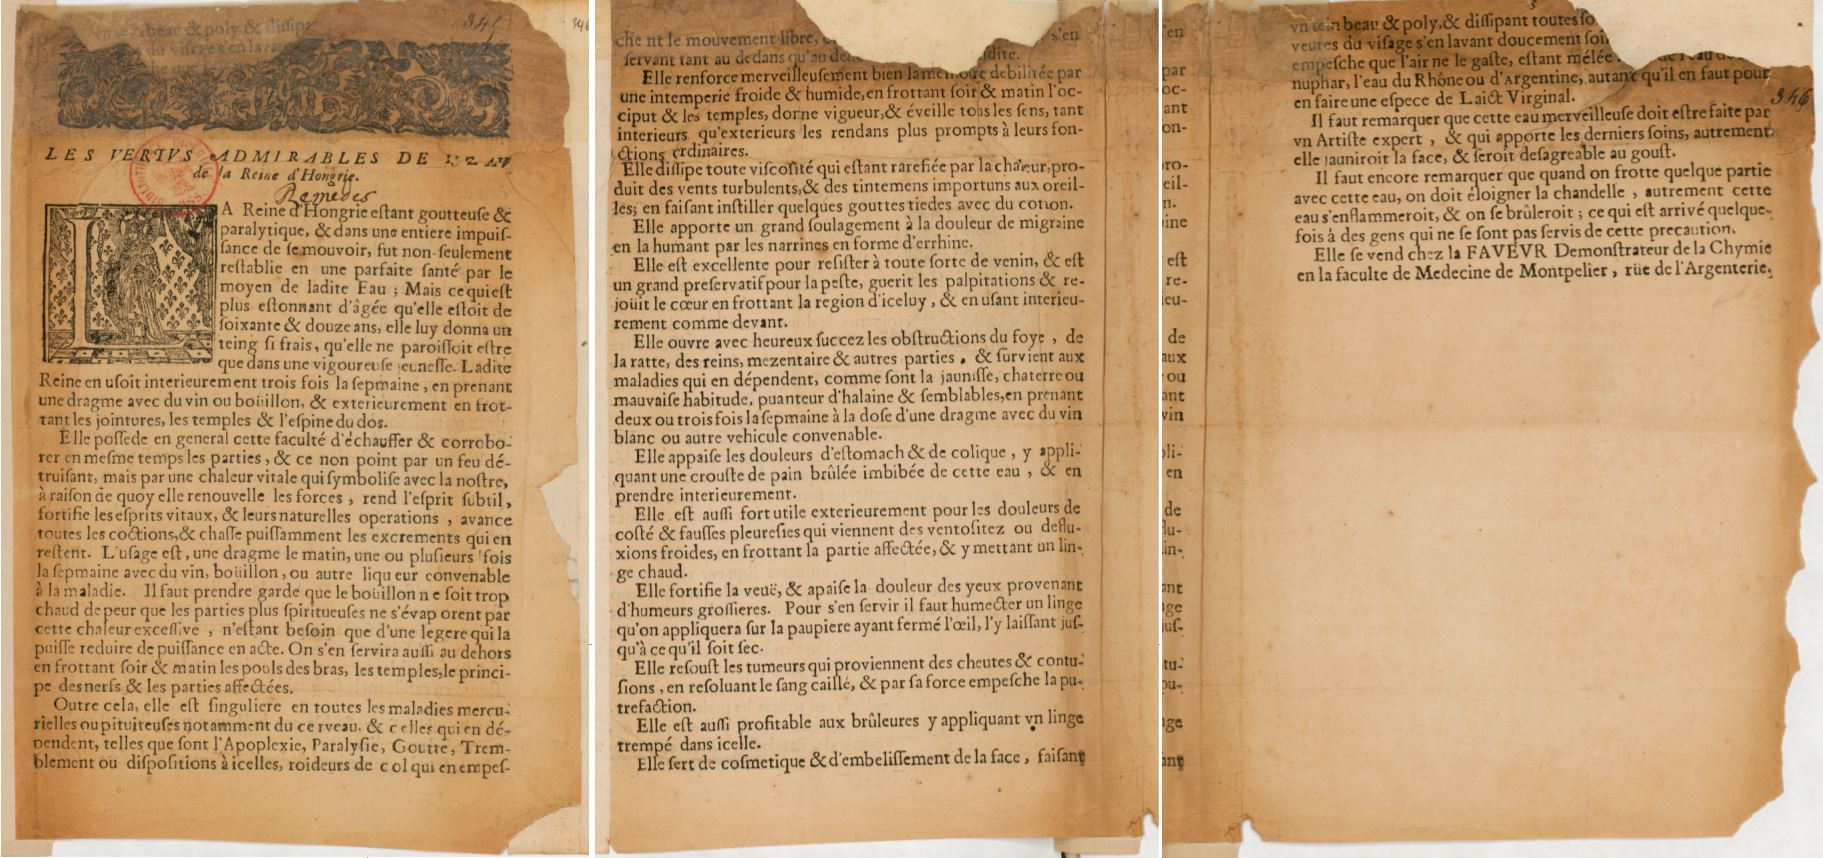 vn tein beau & poly & dissipa
du visage s'en lavan
341
346
LES VERTVS ADMIRABLES DE L'EAV
de la Reine d'Hongrie.
Remedes
LA Reine d'Hongrie estant goutteuse &
paralytique, & dans une entiere impuis-
sance de se mouvoir, fut non-seulement
restablie en une parfaite santé par le
moyen de ladite Eau ; Mais ce qui est
plus estonnant d'âgée qu'elle estoit de
soixante & douze ans, elle luy donna un
teing si frais, qu'elle ne paroissoit estre
que dans une vigoureuse jeunesse. Ladite
Reine en usoit interieurement trois fois la sepmaine, en prenant
une dragme avec du vin ou boüillon, & exterieurement en frot-
tant les jointures, les temples & l'espine du dos.
Elle possede en general cette faculté d'échauffer & corrobo-
rer en mesme temps les parties, & ce non point par un feu dé-
truisant, mais par une chaleur vitale qui symbolise avec la nostre,
à raison de quoy elle renouvelle les forces, rend l'esprit subtil,
fortifie les esprits vitaux, & leurs naturelles operations, avance
toutes les coctions, & chasse puissamment les excrements qui en
restent. L'usage est, une dragme le matin, une ou plusieurs fois
la sepmaine avec du vin, boüillon, ou autre liqueur convenable
à la maladie. Il faut prendre garde que le boüillon ne soit trop
chaud de peur que les parties plus spiritueuses ne s'évaporent par
cette chaleur excessive, n'estant besoin que d'une legere qui la
puisse reduire de puissance en acte. On s'en servira aussi au dehors
en frottant soir & matin les pouls des bras, les temples, le princi-
pe des nerfs & les parties affectées.
Outre cela, elle est singuliere en toutes les maladies mercu-
rielles ou pituiteuses notamment du cerveau. & celles qui en dé-
pendent, telles que sont l'Apoplexie, Paralysie, Goutte, Trem-
blement ou dispositions à icelles, roideurs de col qui en empes-
che nt le mouvement libre, s'en
servant tant au dedans qu'au
Elle renforce merveilleusement bien la memoire debilitée par
une intemperie froide & humide, en frottant soir & matin l'oc-
ciput & les temples, donne vigueur, & éveille tous les sens, tant
interieurs qu'exterieurs les rendans plus prompts à leurs fon-
ctions ordinaires.
Elle dissipe toute viscosité qui estant rarefiée par la chaleur, pro-
duit des vents turbulents, & des tintemens importuns aux oreil-
les; en faisant instiller quelques gouttes tiedes avec du cotton.
Elle apporte un grand soulagement à la douleur de migraine
en la humant par les narrines en forme d'errhine.
Elle est excellente pour resister à toute sorte de venin, & est
un grand preservatif pour la peste, guerit les palpitations & re-
joüit le cœur en frottant la region d'iceluy, & en usant interieu-
rement comme devant.
Elle ouvre avec heureux succez les obstructions du foye, de
la ratte, des reins, mezentaire & autres parties, & survient aux
maladies qui en dépendent, comme sont la jaunisse, chaterre ou
mauvaise habitude, puanteur d'halaine & semblables, en prenant
deux ou trois fois la sepmaine à la dose d'une dragme avec du vin
blanc ou autre vehicule convenable.
Elle appaise les douleurs d'estomach & de colique, y appli-
quant une crouste de pain brûlée imbibée de cette eau, & en
prendre interieurement.
Elle est aussi fort utile exterieurement pour les douleurs de
costé & fausses pleuresies qui viennent des ventositez ou deflu-
xions froides, en frottant la partie affectée, & y mettant un lin-
ge chaud.
Elle fortifie la veuë, & apaise la douleur des yeux provenant
d'humeurs grossieres. Pour s'en servir il faut humecter un linge
qu'on appliquera sur la paupiere ayant fermé l'œil, l'y laissant jus-
qu'à ce qu'il soit sec.
Elle resoust les tumeurs qui proviennent des cheutes & contu-
sions, en resoluant le sang caillé, & par sa force empesche la pu-
trefaction.
Elle est aussi profitable aux brûleures y appliquant vn linge
trempé dans icelle.
Elle sert de cosmetique & d'embelissement de la face, faisant
vn tein beau & poly, & dissipant toutes so
veures du visage s'en lavant doucement soi
empesche que l'air ne le gaste, estant mélée
nuphar, l'eau du Rhône ou d'Argentine, autant qu'il en faut pour
en faire une espece de Laict Virginal.
346
Il faut remarquer que cette eau merveilleuse doit estre faite par
vn Artiste expert, & qui apporte les derniers soins, autrement
elle jauniroit la face, & seroit desagreable au goust.
Il faut encore remarquer que quand on frotte quelque partie
avec cette eau, on doit éloigner la chandelle, autrement cette
eau s'enflammeroit, & on se brûleroit ; ce qui est arrivé quelque-
fois à des gens qui ne se sont pas servis de cette precaution.
Elle se vend chez la FAVEVR Demonstrateur de la Chymie
en la faculte de Medecine de Montpelier, rüe de l'Argenterie.